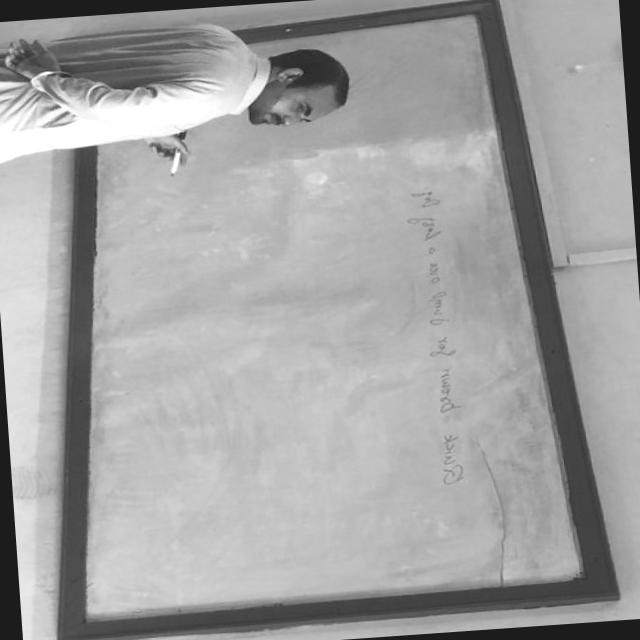 Quick brown fox Jump over a lazy dog